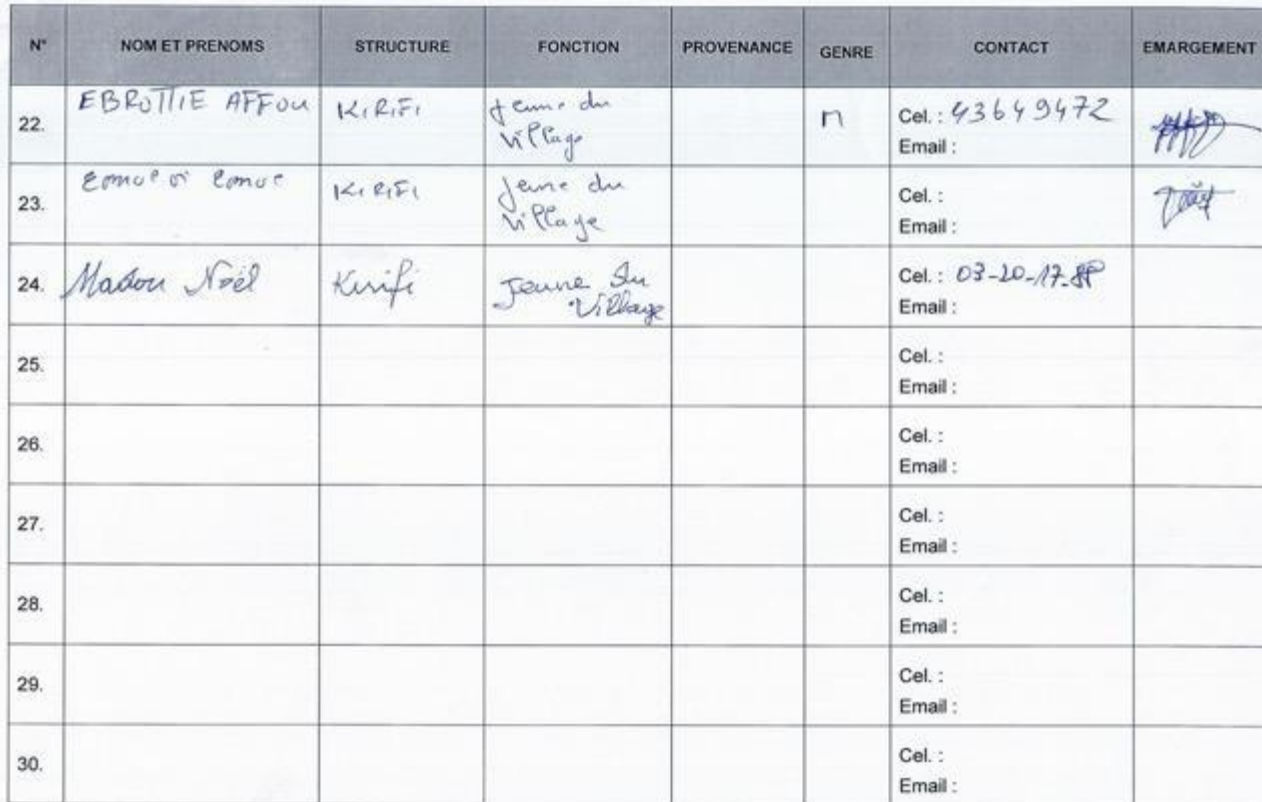 N° NOM ET PRENOMS STRUCTURE FONCTION PROVENANCE GENRE CONTACT EMARGEMENT
22. EBROTTIE AFFOU KIRIFI Jeune du Village M Cel. : 43649472
Email :
23. KIRIFI Jeune du Village Cel. :
Email :
24. Madou Noël Kirifi Jeune du Village Cel. : 03-20-17-88
Email :
25. Cel. :
Email :
26. Cel. :
Email :
27. Cel. :
Email :
28. Cel. :
Email :
29. Cel. :
Email :
30. Cel. :
Email :